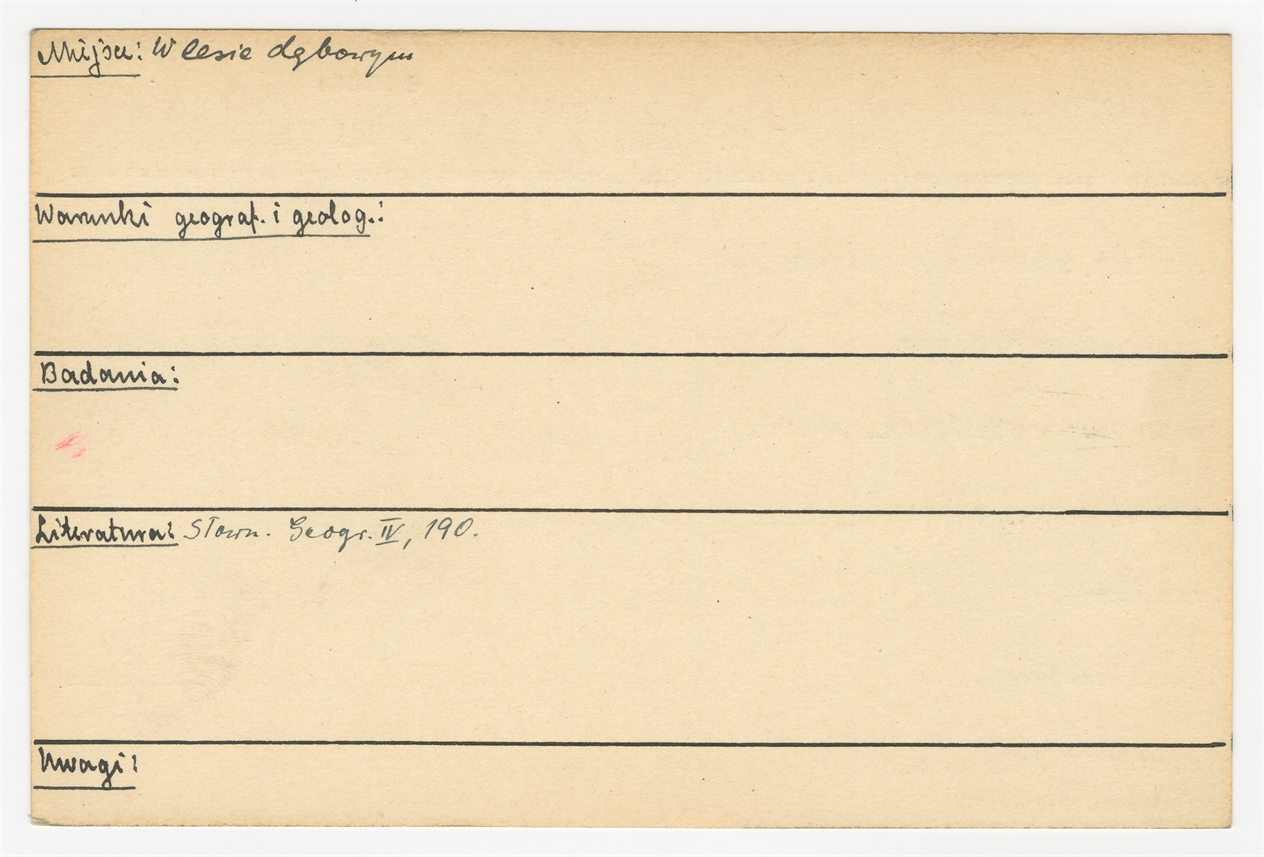 Miejsce: W lesie dębowym
Warunki geograf. i geolog.:
Badania:
Literatura: Słown. Geogr. IV, 190.
Uwagi: